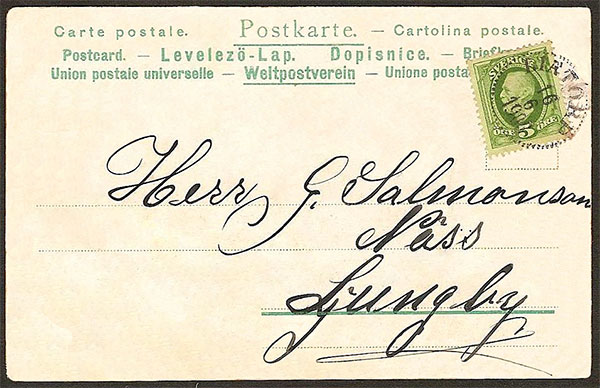 Carte postale. Postkarte. — Cartolina postale.
Postcard. — Levelezö-Lap. Dopisnice. —
Union postale universelle — Weltpostverein — Unione
SVERIGE
16
5 ÖRE
Herr G. Salmonson
Näss
Ljungby